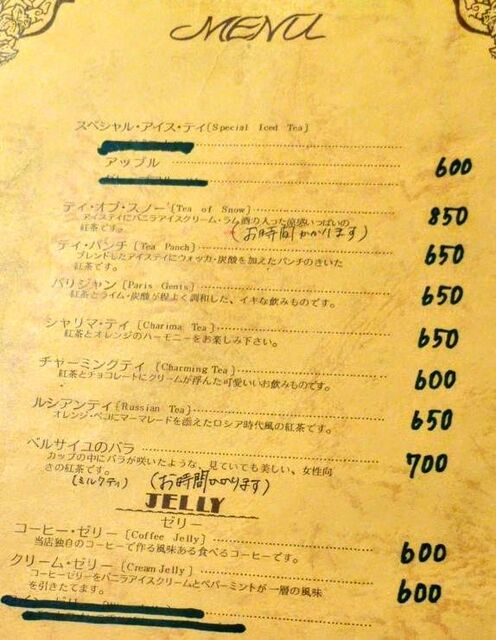 MENU
スペシャル・アイス・ティ〔Special Iced Tea〕
アップル 600
ティ・オブ・スノー〔Tea of Snow〕 850
アイスティにバニラアイスクリーム・ラム酒の入った涼感いっぱいの
紅茶です。(お時間かかります)
ティ・パンチ〔Tea Panch〕 650
ブレンドしたアイスティにウォッカ・炭酸を加えたパンチのきいた
紅茶です。
パリジャン〔Paris Gents〕 650
紅茶とライム・炭酸が程よく調和した、イキな飲みものです。
シャリマ・ティ〔Charima Tea〕 650
紅茶とオレンジのハーモニーをお楽しみ下さい。
チャーミングティ〔Charming Tea〕 600
紅茶とチョコレートにクリームが浮んだ可愛いいお飲みものです。
ルシアンティ〔Russian Tea〕 650
オレンジ・ペコにマーマレードを添えたロシア時代風の紅茶です。
ベルサイユのバラ 700
カップの中にバラが咲いたような、見ていても美しい、女性向
きの紅茶です。
(ミルクティ) (お時間かかります)
JELLY
ゼリー
コーヒー・ゼリー〔Coffee Jelly〕 600
当店独自のコーヒーで作る風味ある食べるコーヒーです。
クリーム・ゼリー〔Cream Jelly〕 600
コーヒーゼリーをバニラアイスクリームとペパーミントが一層の風味
を引きたてます。